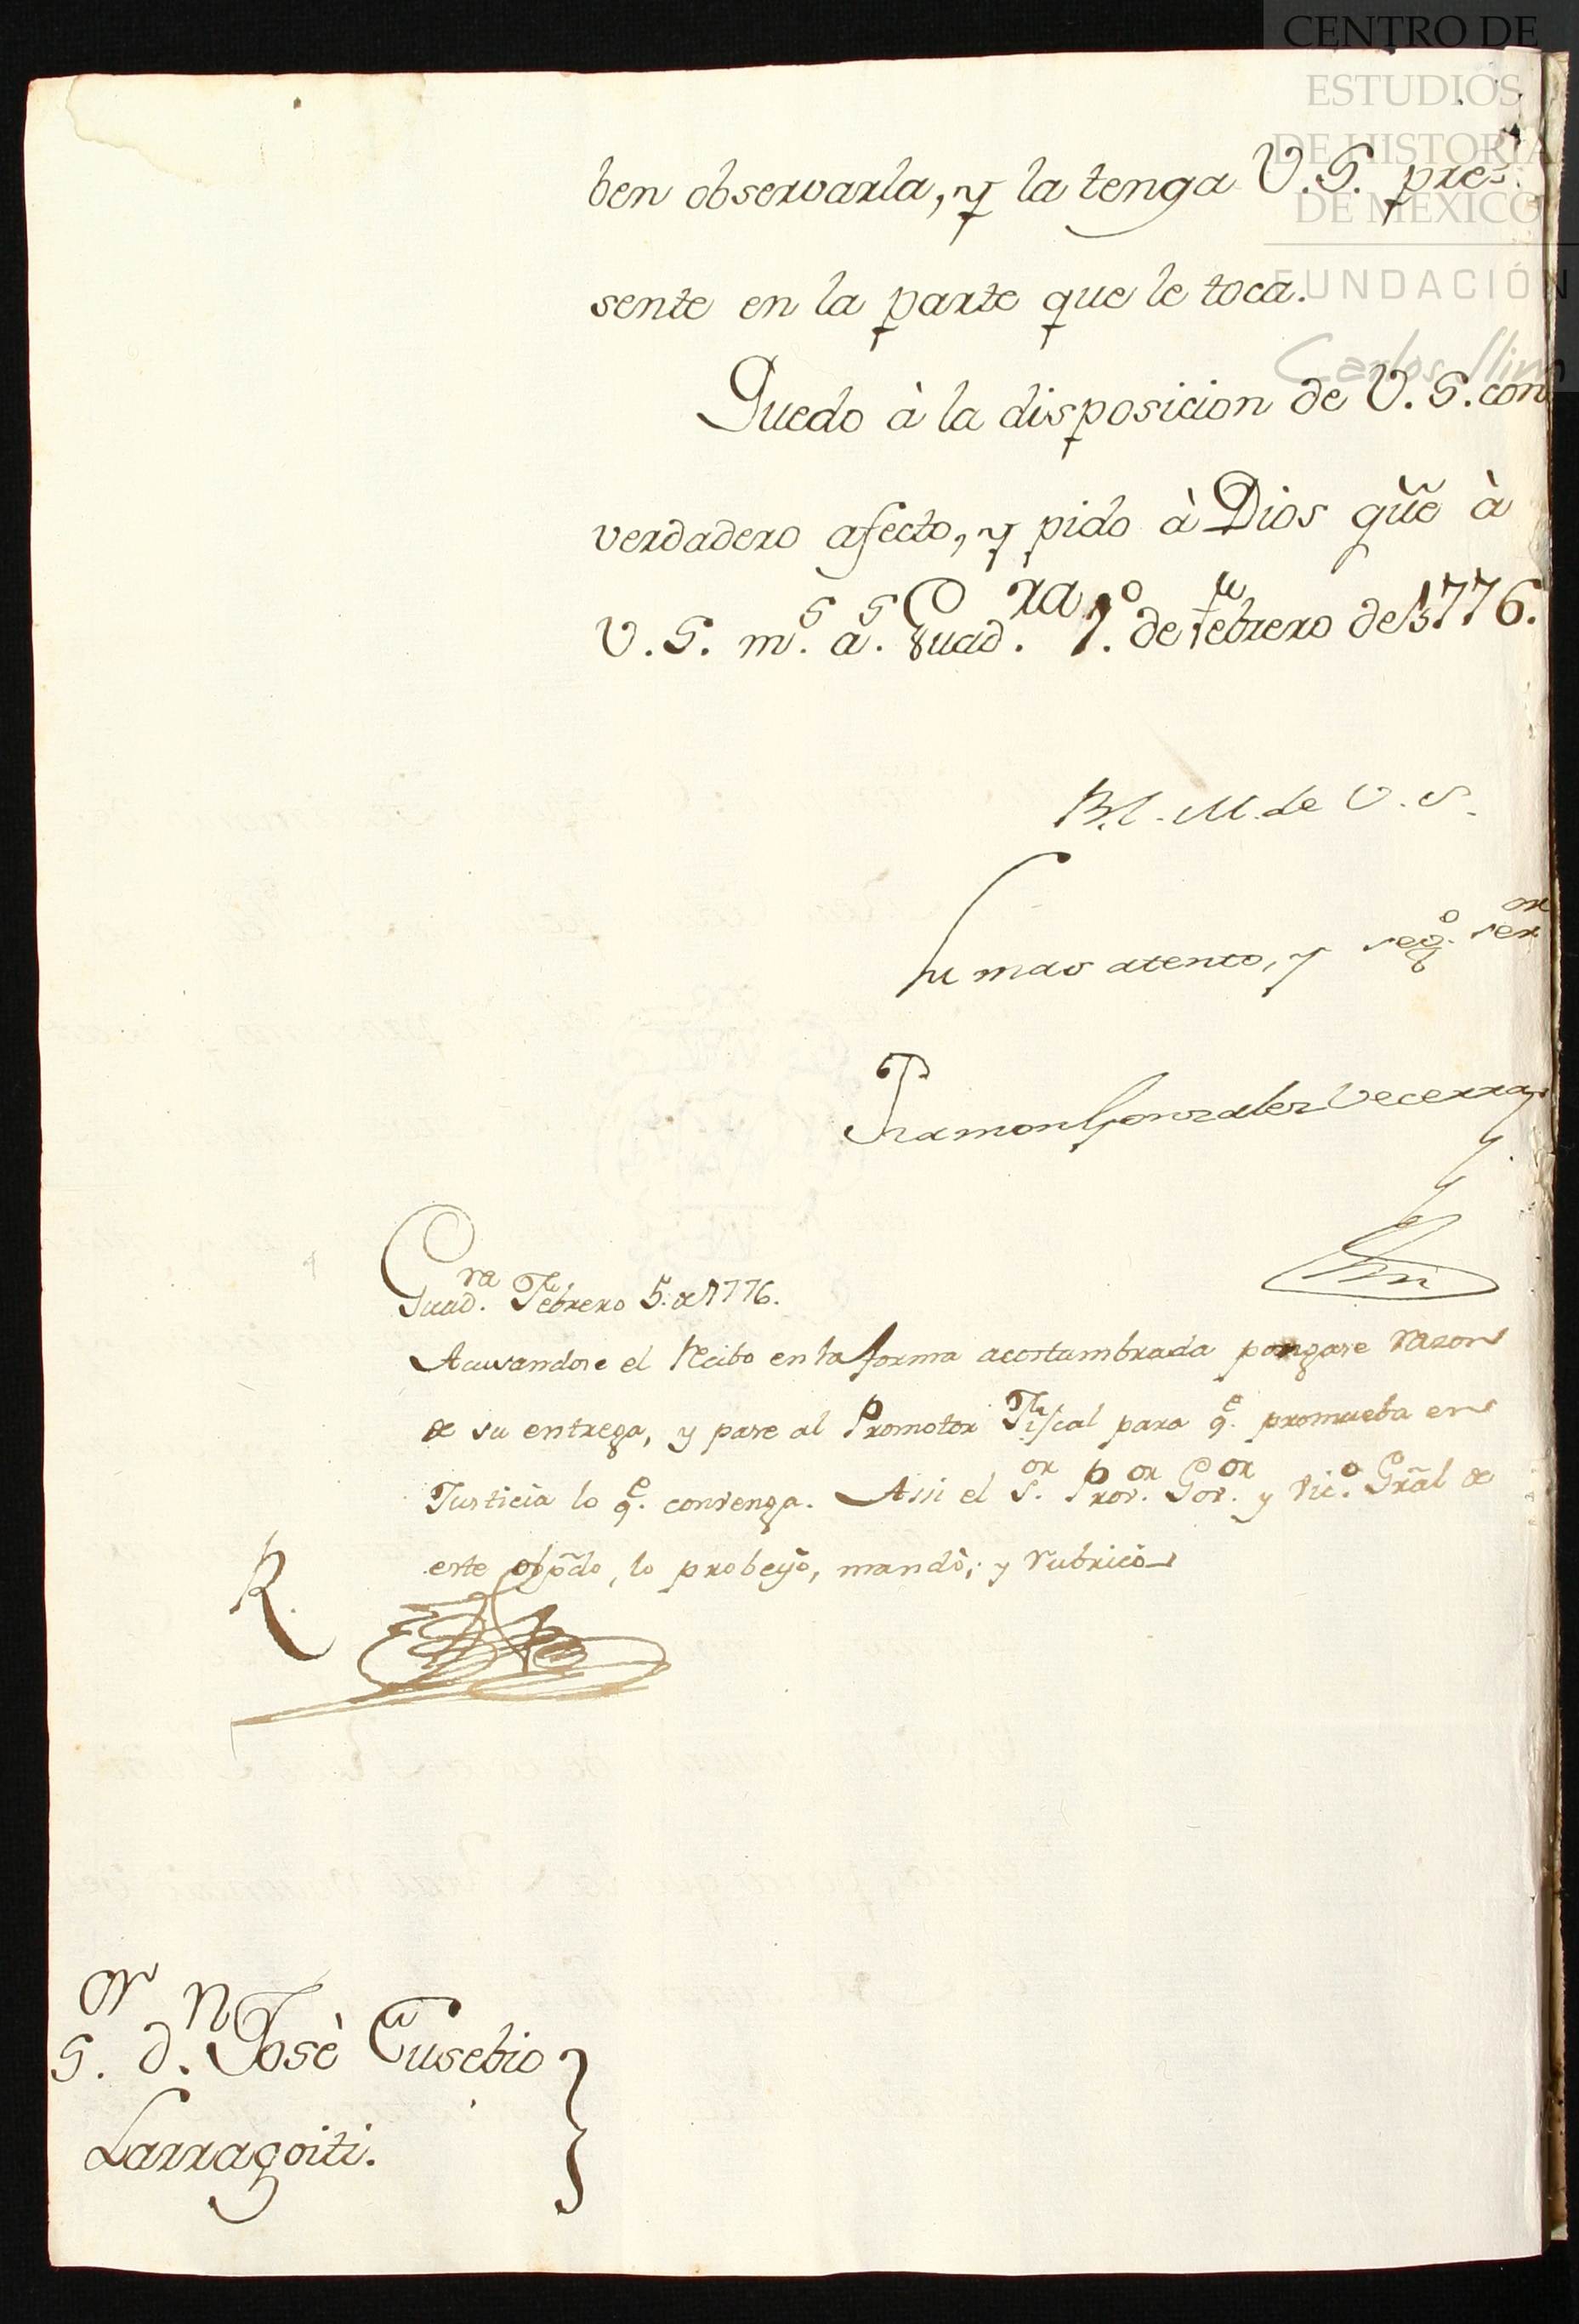 CENTRO DE
ESTUDIOS
DE HISTORIA
DE MEXICO
FUNDACIÓN
Carlos Slim
ben observarla, y la tenga V.S. pre-
sente en la parte que le toca.
Quedo à la disposicion de V.S. con
verdadero afecto, y pido à Dios gũe à
V.S. m.s a.s Guad.ra 1.o de Febrero de 1776.
B.l.M. de V.S.
Su mas atento, y seg.o ser.or
Ramon Gonzalez Vecerra
Guad.ra Febrero 5. de 1776.
Acusandose el Recibo en la forma acostumbrada pongase razon
de su entrega, y pase al Promotor Fiscal para q.e promueba en
Justicia lo q.e convenga. Assi el S.or Pror.or Gov.or y Vic.o Grãl de
este obp̃do, lo probeyò, mandò, y rubricò
R.
S.or d.n Josè Eusebio
Larragoiti.